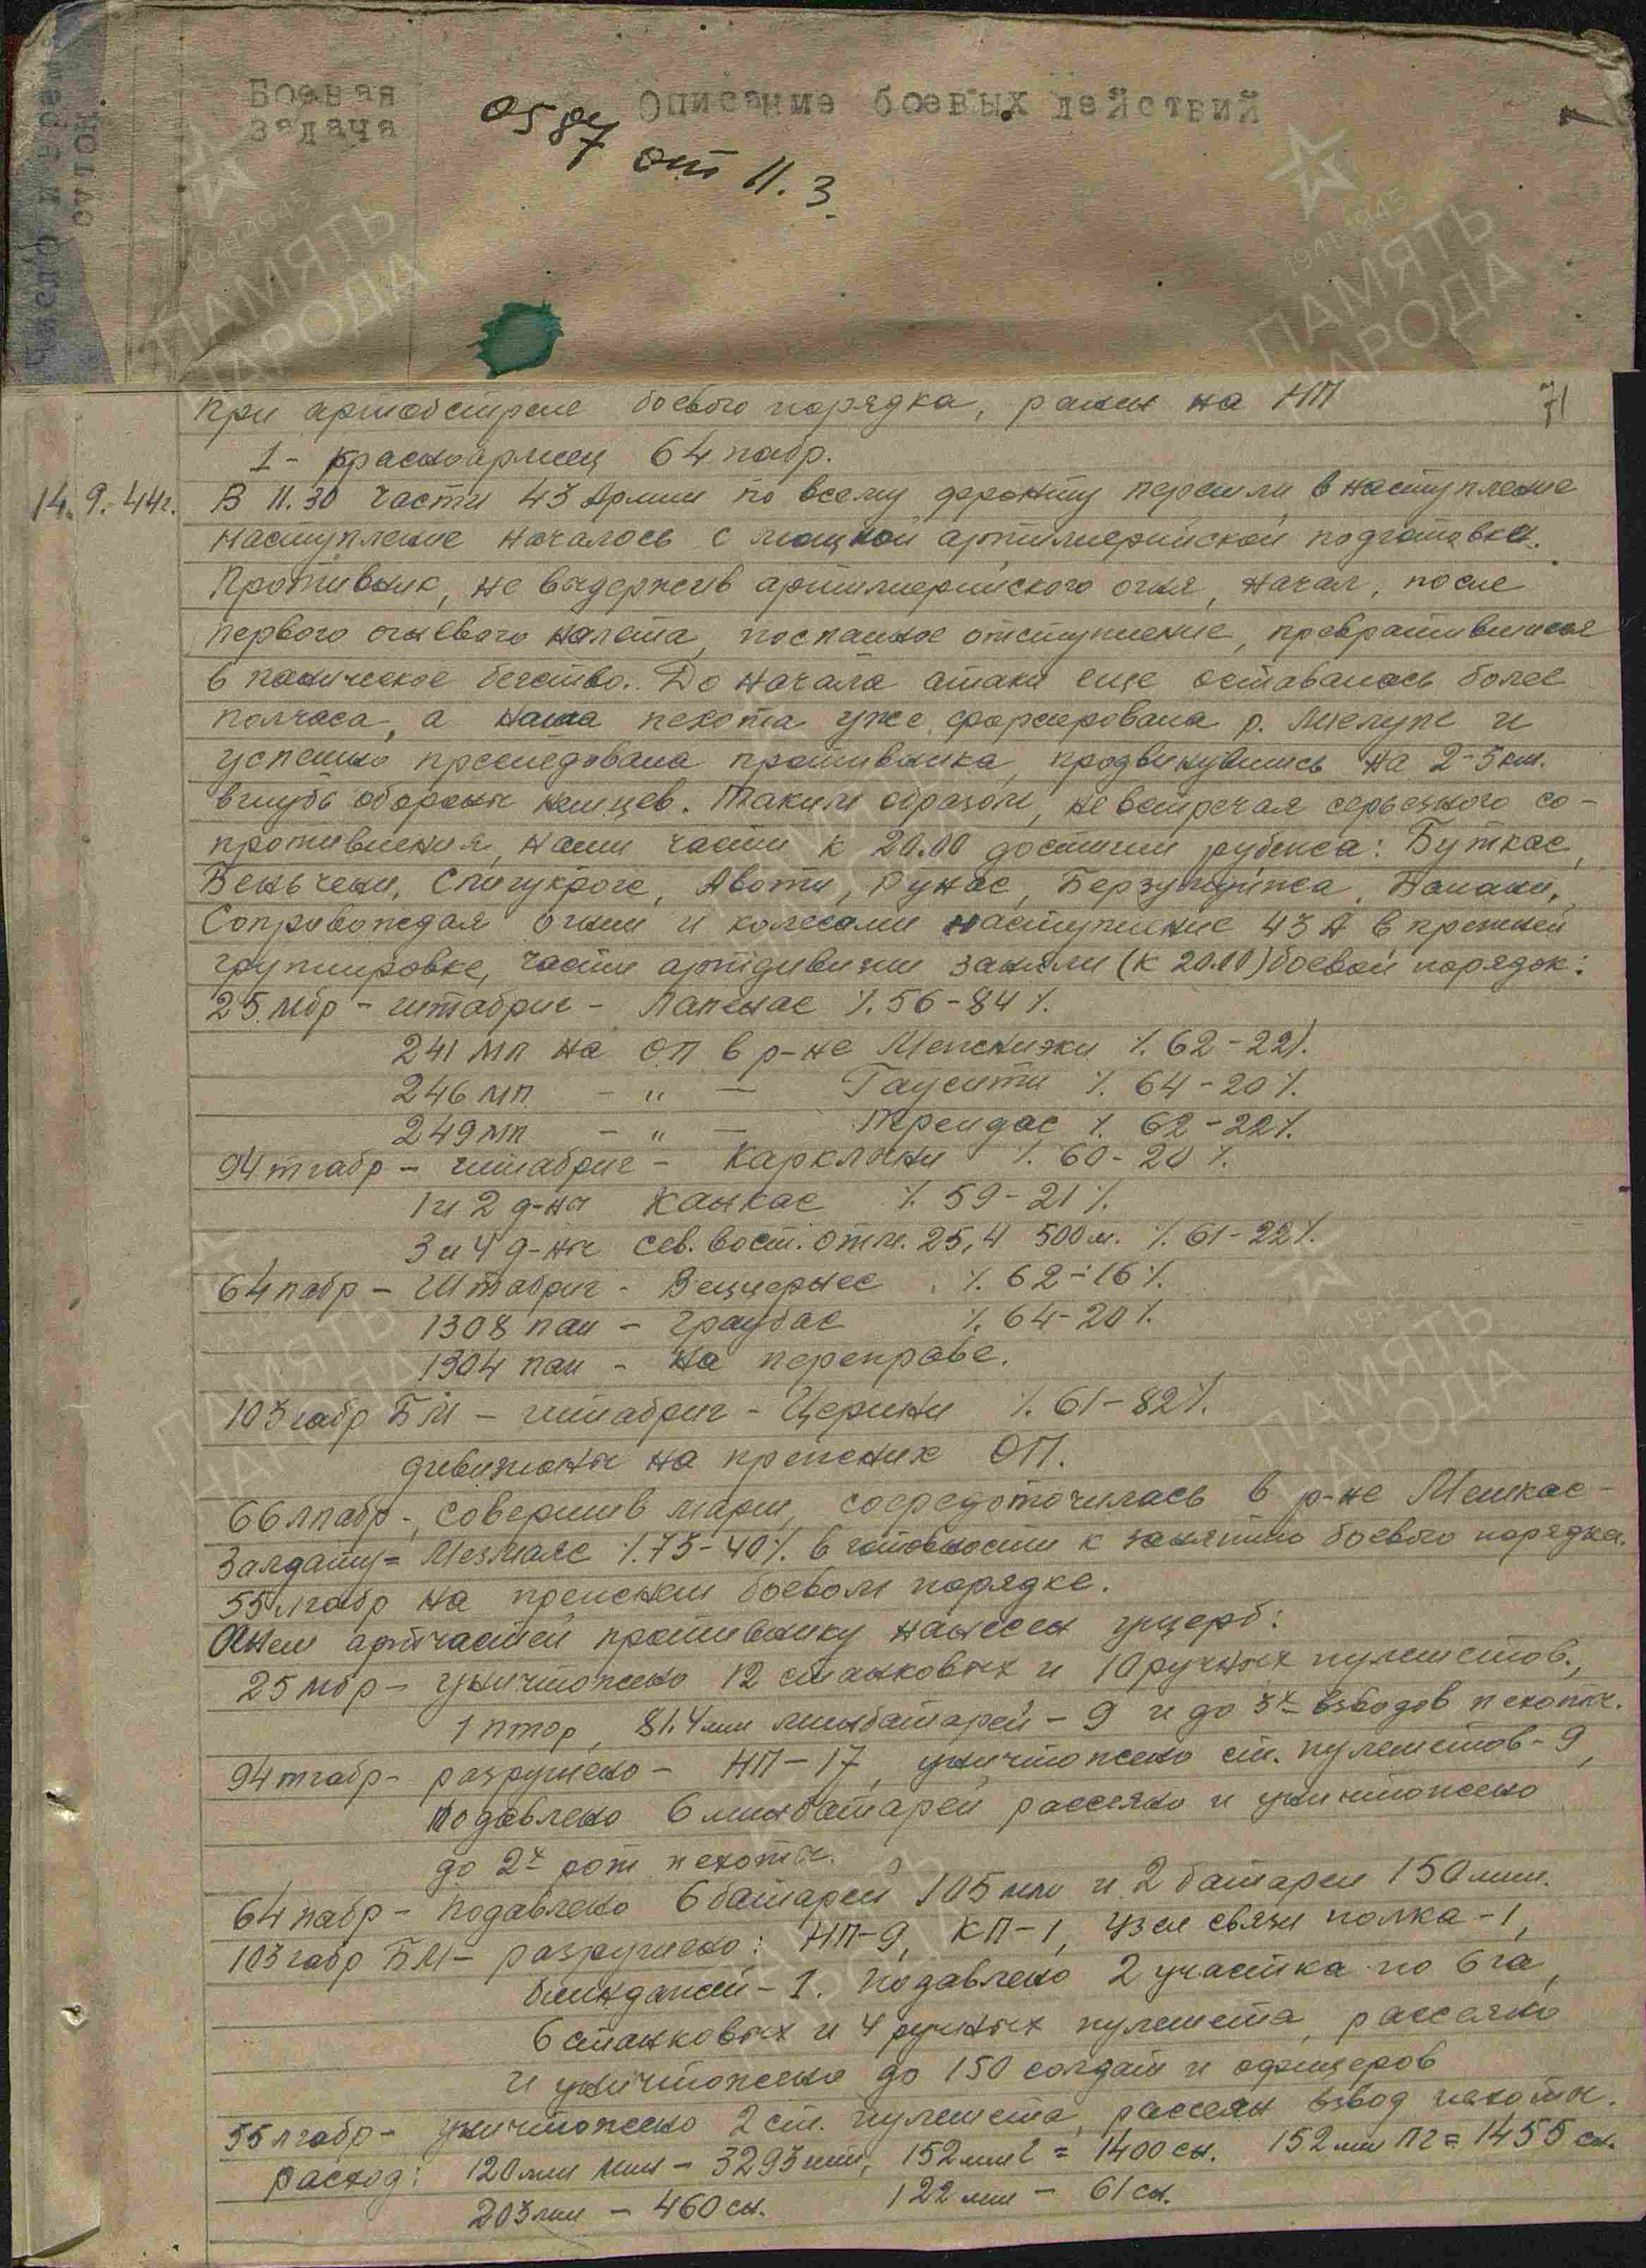 Число и время
Боевая задача
Описание боевых действий
0587 от 11.3
71
При артобстреле боевого порядка, ранен на НП
1 - красноармеец 64 пабр.
14.9.44г. В 11.30 части 43 Армии по всему фронту перешли в наступление
наступление началось с мощной артиллерийской подготовки.
Противник, не выдержив артиллерийского огня, начал, после
первого огневого налета, поспешное отступление, превратившееся
в паническое бегство. До начала атаки еще оставалось более
получаса, а наша пехота уже форсировала р. Миелупе и
успешно преследовала противника, продвинувшись на 2-3 км.
вглубь обороны немцев. Таким образом, не встречая серьезного со-
противления, наши части к 20.00 достигли рубежа: Буткас,
Веньчени, Спигукроге, Авоти, Рунас,
Сопровождая огнем и колесами наступление 43 А в прежней
группировке, части артдивизии заняли (к 20.00) боевой порядок:
25 мбр - штабриг - Лапенас %.56-84%.
241 мп на ОП в р-не %.62-22%.
246 мп - " - Гаусити %.64-20%.
249 мп - " - %.62-22%.
94 тгабр - штабриг - Карклини %.60-20%.
1 и 2 д-ны Канкас %.59-21%.
3 и 4 д-ны сев. вост. отм. 25,4 500м. %.61-22%.
64 пабр - Штабриг - %.62-16%.
1308 пап - Граубас %.64-20%.
1304 пап - на переправе.
103 габр БМ - штабриг - Церини %.61-82%.
дивизионы на прежних ОП.
66 лпабр -, совершив марш, сосредоточилась в р-не Мешкас -
Залдату = Мезмаяс %.73-40%. в готовности к занятию боевого порядка.
55 лгабр на прежнем боевом порядке.
Огнем артчастей противнику нанесен ущерб:
25 мбр - уничтожено 12 станковых и 10 ручных пулеметов,
1 птор, 81,4мм минбатарей - 9 и до 3х взводов пехоты.
94 тгабр - разрушено - НП - 17, уничтожено ст. пулеметов - 9,
подавлено 6 минбатарей рассеяно и уничтожено
до 2х рот пехоты.
64 пабр - подавлено 6 батарей 105 мм и 2 батареи 150 мм.
103 габр БМ - разрушено: НП-9, КП-1, узел связи полка - 1,
блиндажей - 1. Подавлено 2 участка по 6 га,
6 станковых и 4 ручных пулемета, рассеяно
и уничтожено до 150 солдат и офицеров
55 лгабр - уничтожено 2 ст. пулемета, рассеян взвод пехоты.
расход: 120 мм мин - 3293 шт, 152 мм г = 1400 сн. 152 мм ПГ = 1455 сн.
203 мм - 460 сн. 122 мм - 61 сн.